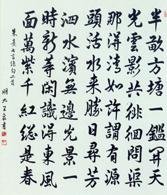 半畝方塘一鑑開天
光雲影共徘徊問渠
那得清如許為有源
頭活水來勝日尋芳
泗水濱無邊光景一
時新等閒識得東風
面萬紫千紅總是春